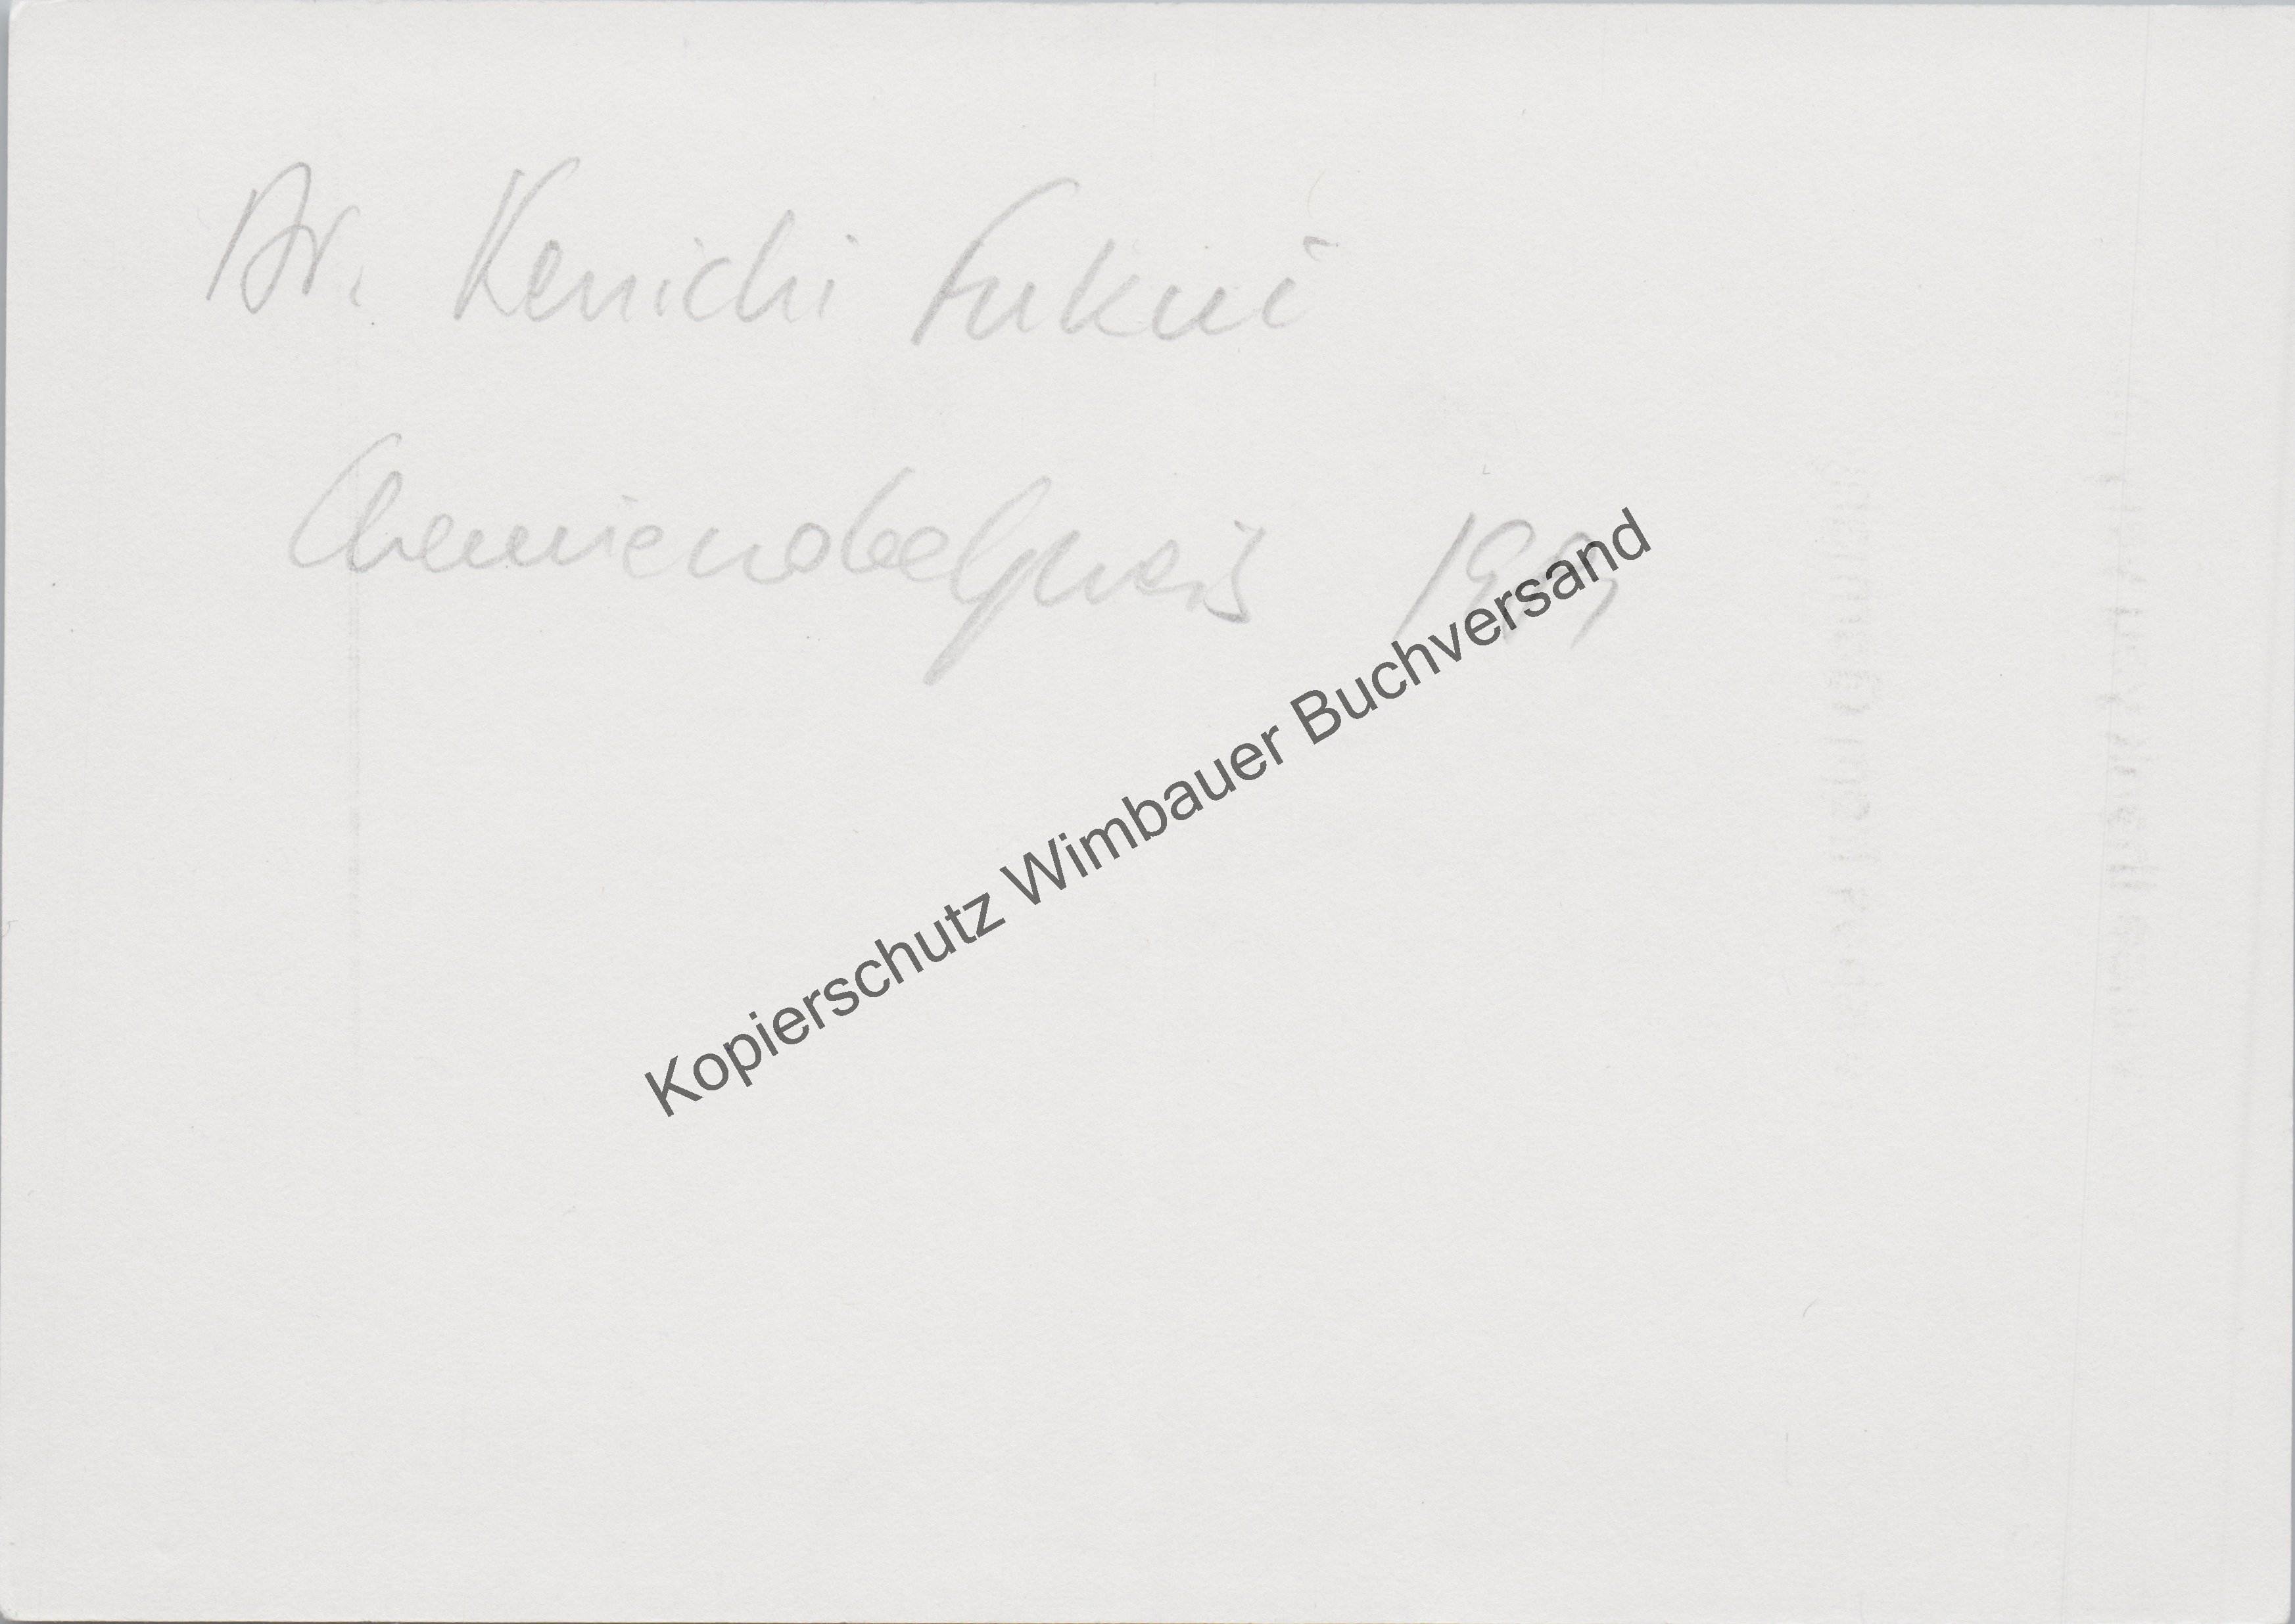 Dr. Kenichi Fukui
Chemienobelpreis
Kopierschutz Wimbauer Buchversand